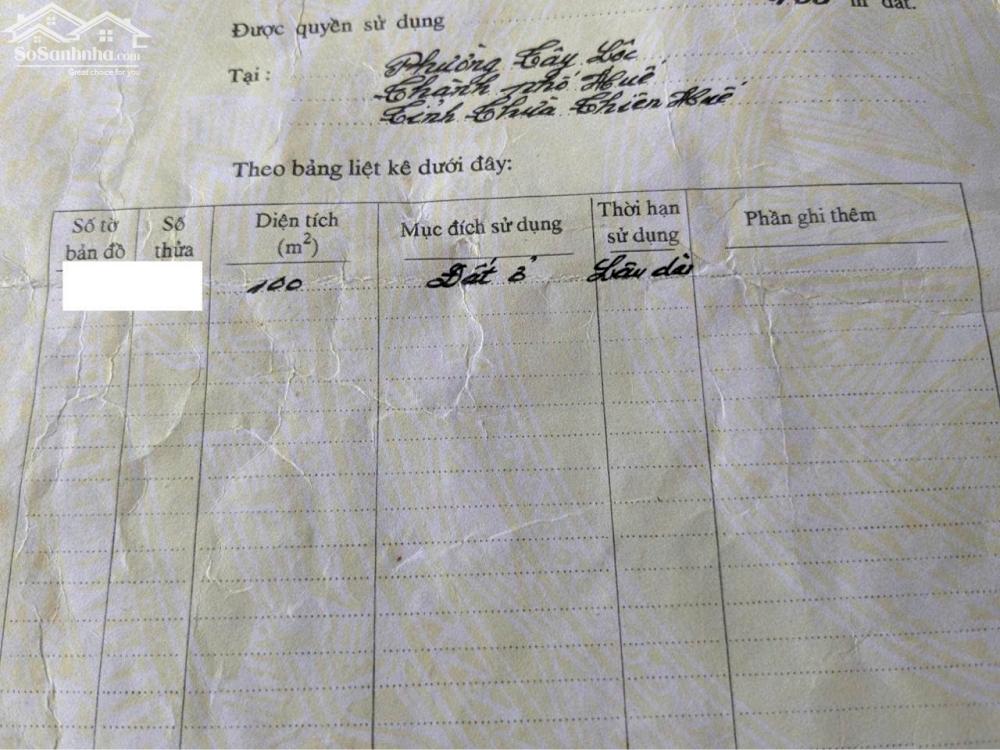 SoSanhnha.com
Great choice for you
m đất.
Được quyền sử dụng
Tại : Phường Tây Lộc
Thành phố Huế
Tỉnh Thừa Thiên Huế
Theo bảng liệt kê dưới đây:
Số tờ bản đồ Số thửa Diện tích (m2) Mục đích sử dụng Thời hạn sử dụng Phần ghi thêm
100 Đất ở Lâu dài